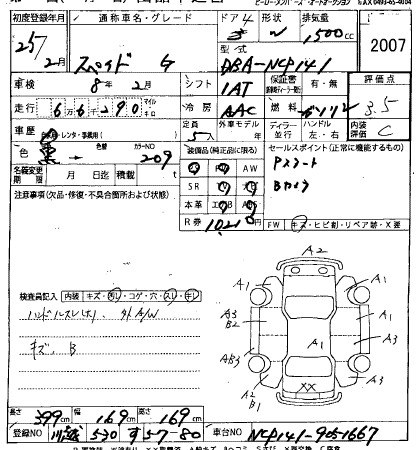 初度登録年月 通称車名・グレード ドア 形状 排気量
25/2月 スペイド G 1,500cc 2007
型式
DBA-NCP141
車検 8年2月 シフト 1AT 保証書 有・無 評価点
走行 66290 マイル キロ 冷房 AAC 燃料 ガソリン 3.5
車歴 レンタ・事業用 定員 5人 外車モデル ディーラー 並行 ハンドル 左・右 内装評価 C
色 黒→ 色替 カラーNO 209
装備品(純正品に限る) セールスポイント(正常に機能するもの)
名義変更期限 月 日迄 積載 AW Pスタート
SR Bカメラ
注意事項(欠品・修復・不具合箇所および状態)
本革
R券 10210
FW キズ・ヒビ割・リペア跡・X要
A2
A1 A1
検査員記入 内装 キズ・汚レ・コゲ・穴・スレ・キレ
A3 B2 A1 A3
キズ、B
AB3 A3
XX
A2 B1
長さ 399cm 幅 169cm 高さ 169cm
登録NO 川越 530 す57-80 車台NO NCP141-9051667